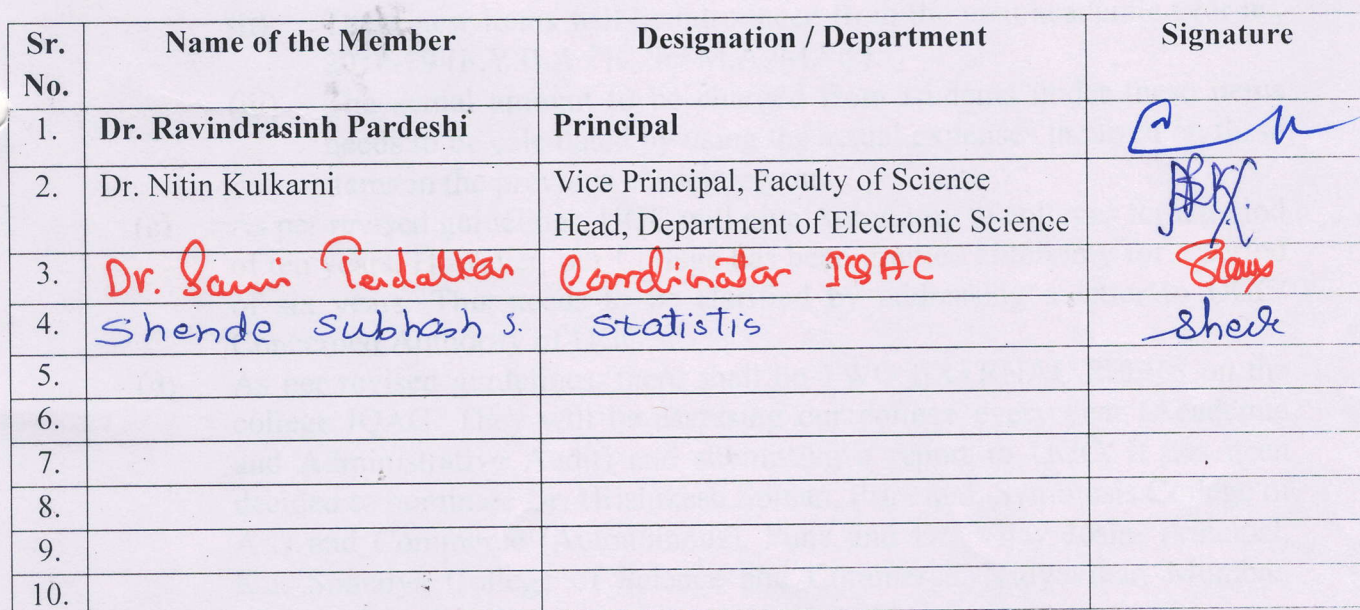 Sr. No. Name of the Member Designation / Department Signature
1. Dr. Ravindrasinh Pardeshi Principal
2. Dr. Nitin Kulkarni Vice Principal, Faculty of Science
Head, Department of Electronic Science
3. Dr. Samir Terdalkar Coordinator IQAC
4. Shende Subhash S. Statistis
5.
6.
7.
8.
9.
10.